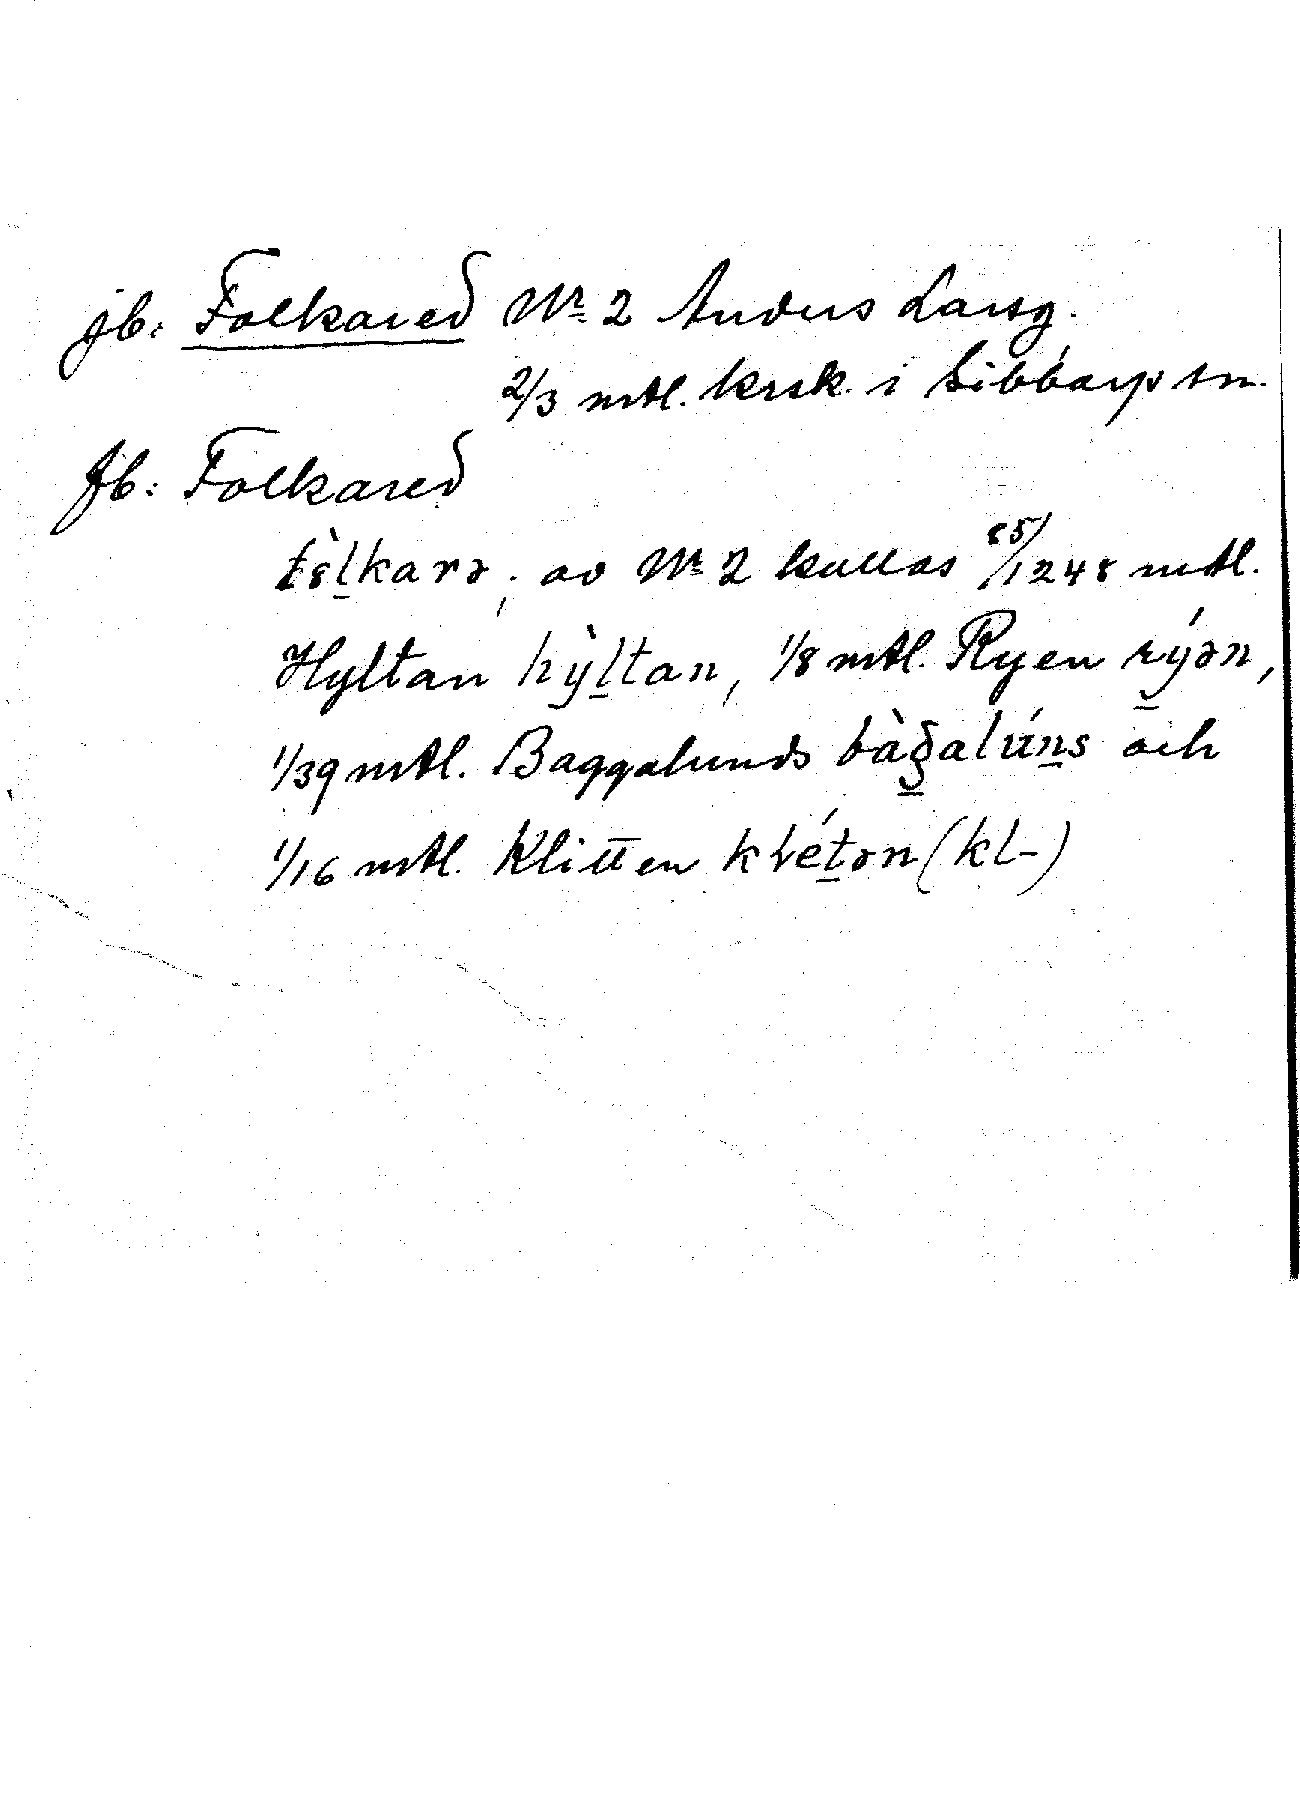 jb: Folkared Nr 2 Anders Larsg.
2/3 mtl. krsk. i Sibbarp sn.
fb: Folkared
fòl̲karə, av Nr 2 kallas 85/1248 mtl.
Hyltan hỳl̲tan, 1/8 mtl. Ryen rýən,
1/39 mtl. Baggalunds bàg̲alún̲s och
1/16 mtl. Klitten klét̲ən (kl-)